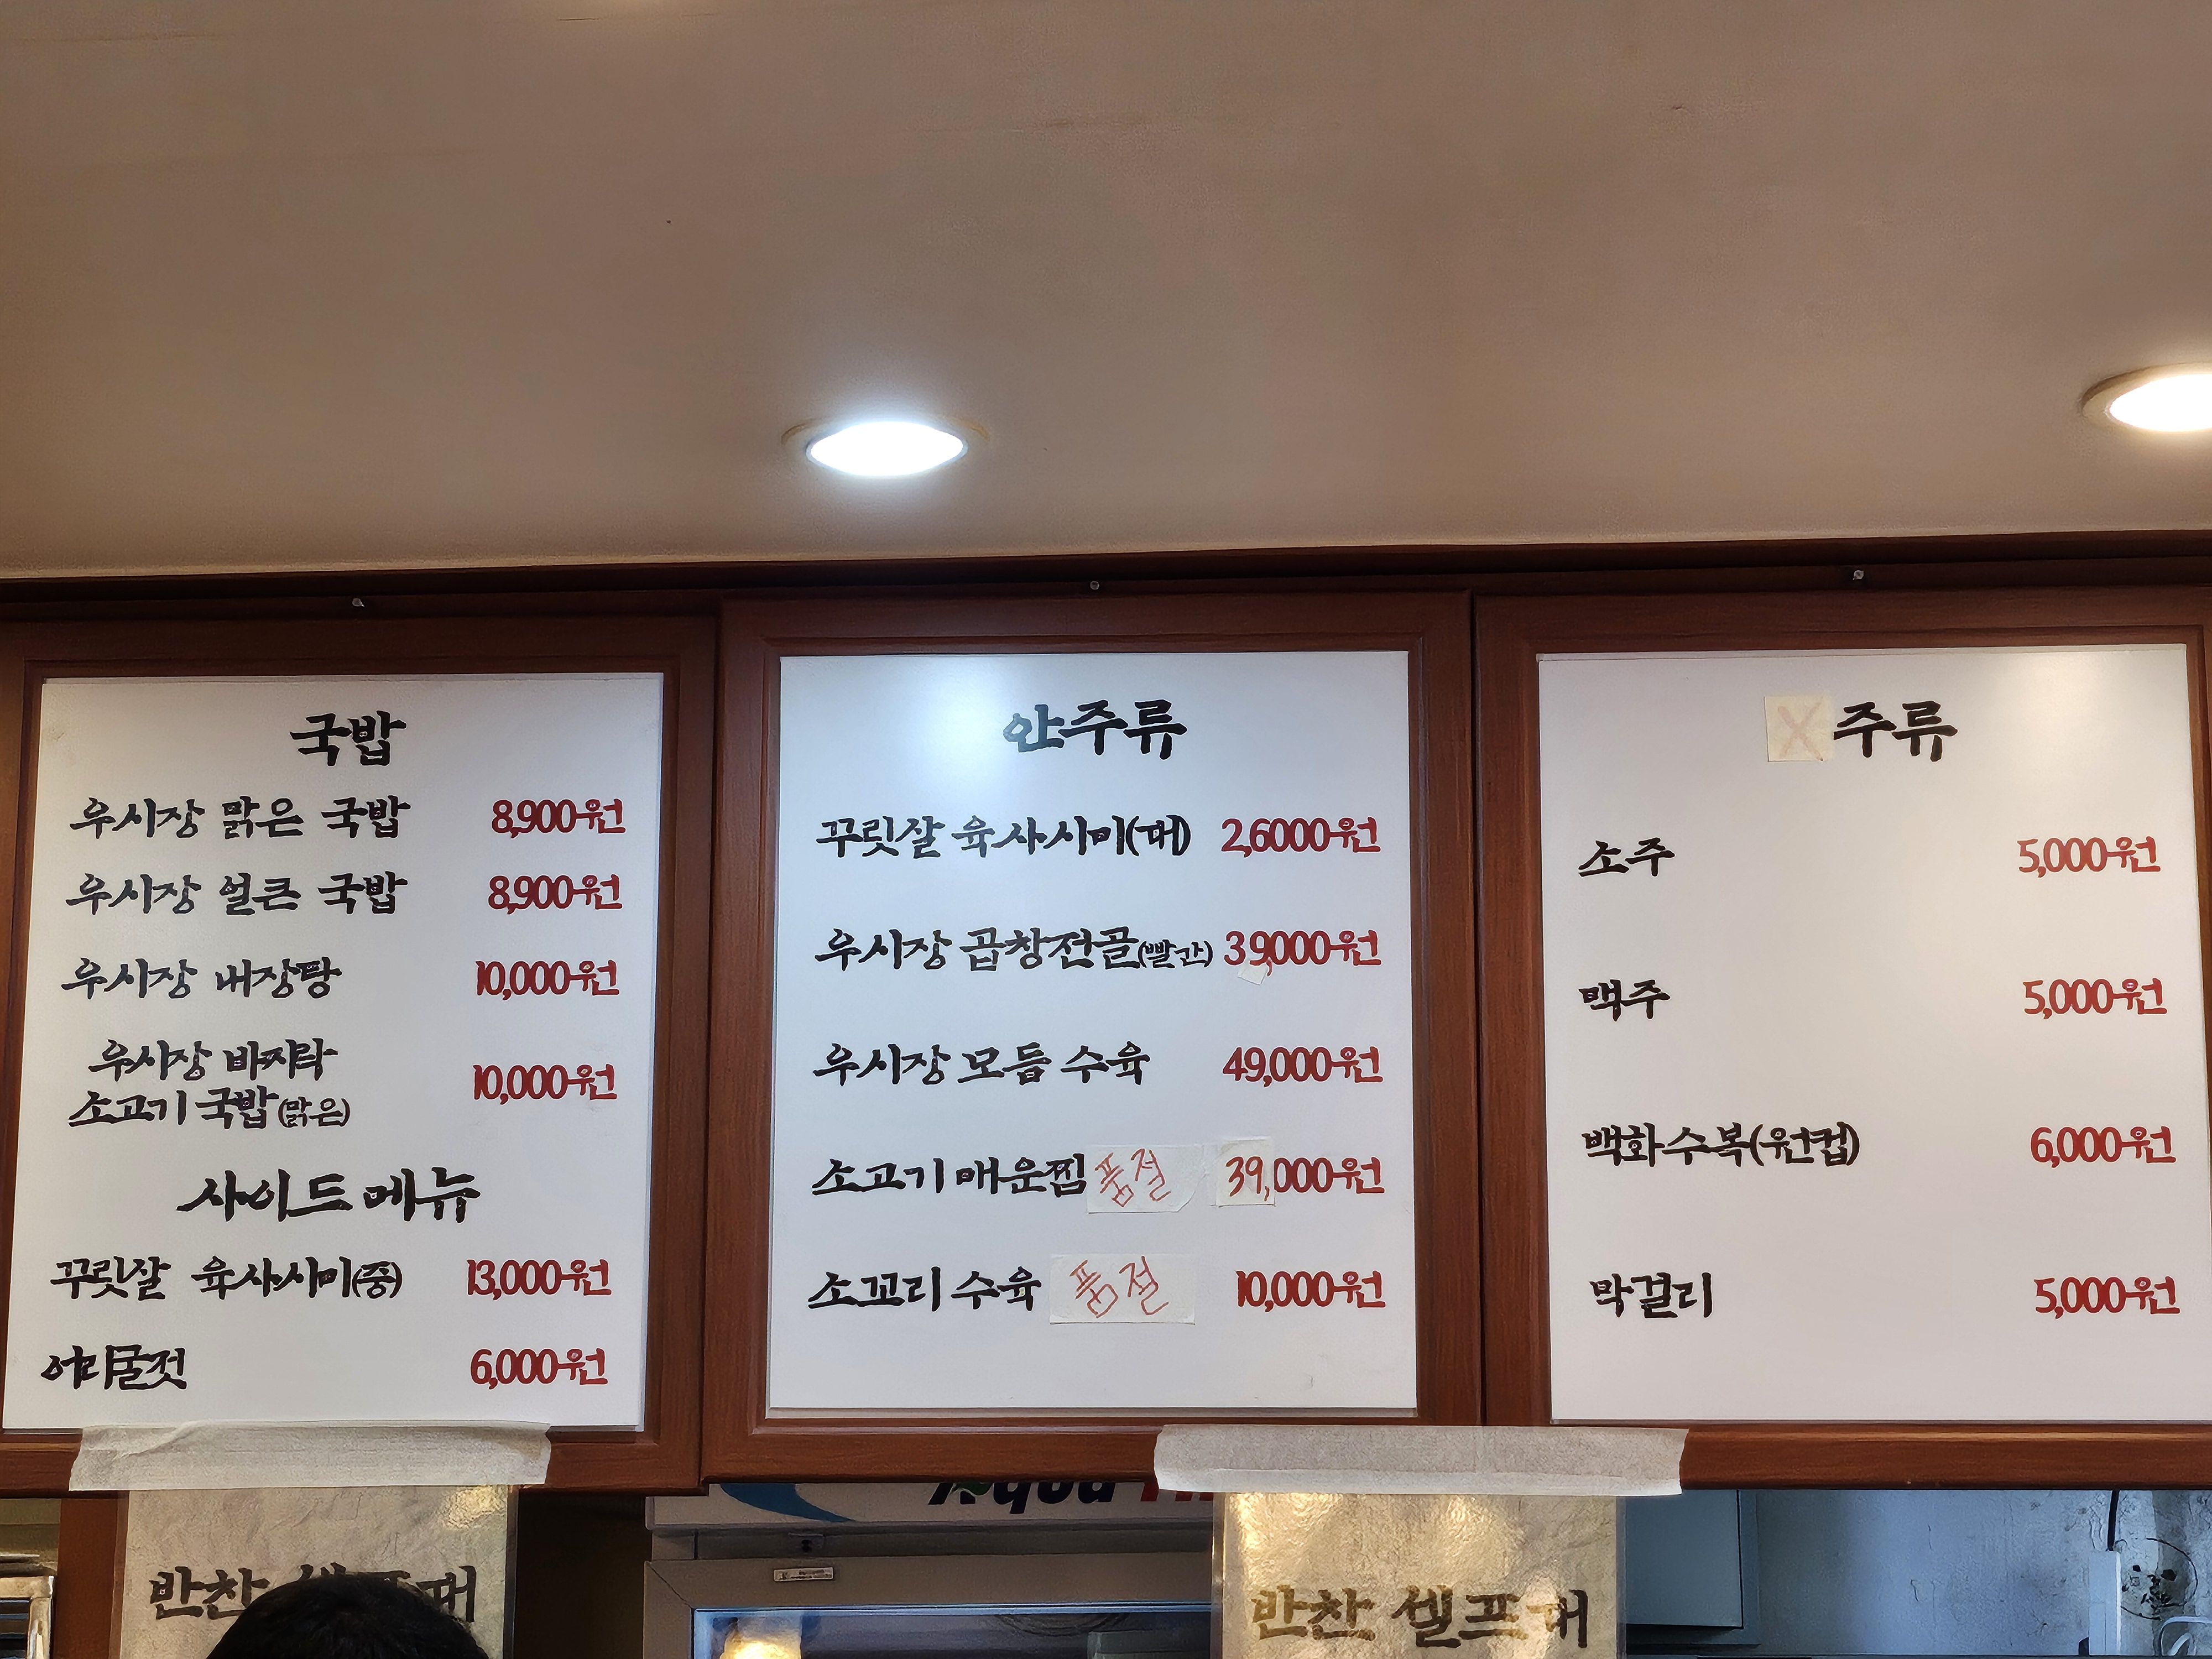 국밥
우시장 맑은 국밥 8,900원
우시장 얼큰 국밥 8,900원
우시장 내장탕 10,000원
우시장 바지락
소고기 국밥(맑은) 10,000원
사이드 메뉴
꾸릿살 육사시미(중) 13,000원
어리굴젓 6,000원
안주류
꾸릿살 육사시미(대) 2,6000원
우시장 곱창전골(빨간) 39,000원
우시장 모듬 수육 49,000원
소고기 매운찜 품절 39,000원
소꼬리 수육 품절 10,000원
X 주류
소주 5,000원
맥주 5,000원
백화수복(원컵) 6,000원
막걸리 5,000원
Aqua
반찬
반찬 셀프대